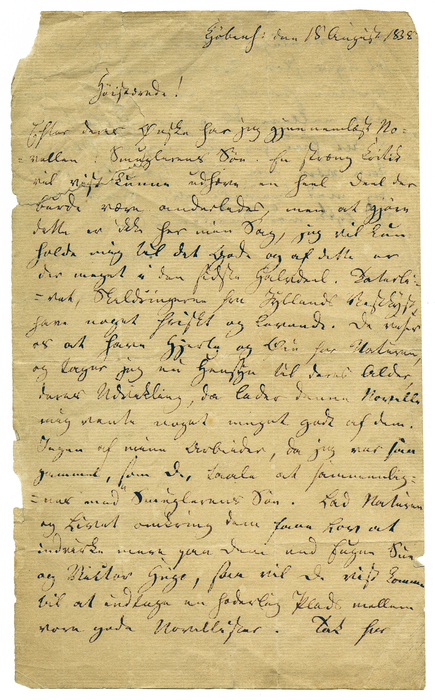 Kjöbenh: den 18 August 1838
Høistærede!
Efter deres Ønske har jeg gjennemlæst No-
=vellen: Smuglerens Søn. En stræng Kritik
vil vist kunne udhæve en heel Deel der
burde være anderledes, men at gjøre
dette er ikke her min Sag, jeg vil kun
holde mig til det Gode og af dette er
der meget i den sidste Halvdeel. Daterli-
Skildringerne fra Jyllands Vestkyst,
have noget friskt og levende. De viser
os at have Hjerte og Øie for Naturen,
og tager jeg nu Hensyn til deres Alder,
deres Udvikling, da lader denne Novelle
mig vente noget meget godt af dem.
Ingen af mine Arbeider, da jeg var saa
gammel, som De, taale at sammenlig-
=nes med Smuglerens Søn. Lad Naturen
og Livet omkring dem faae Lov at
indvirke mere paa dem end Eugen Sue
og Victor Hugo, saa vil De vist komme
til at indtage en hæderlig Plads mellem
vore gode Novellister. Tak for